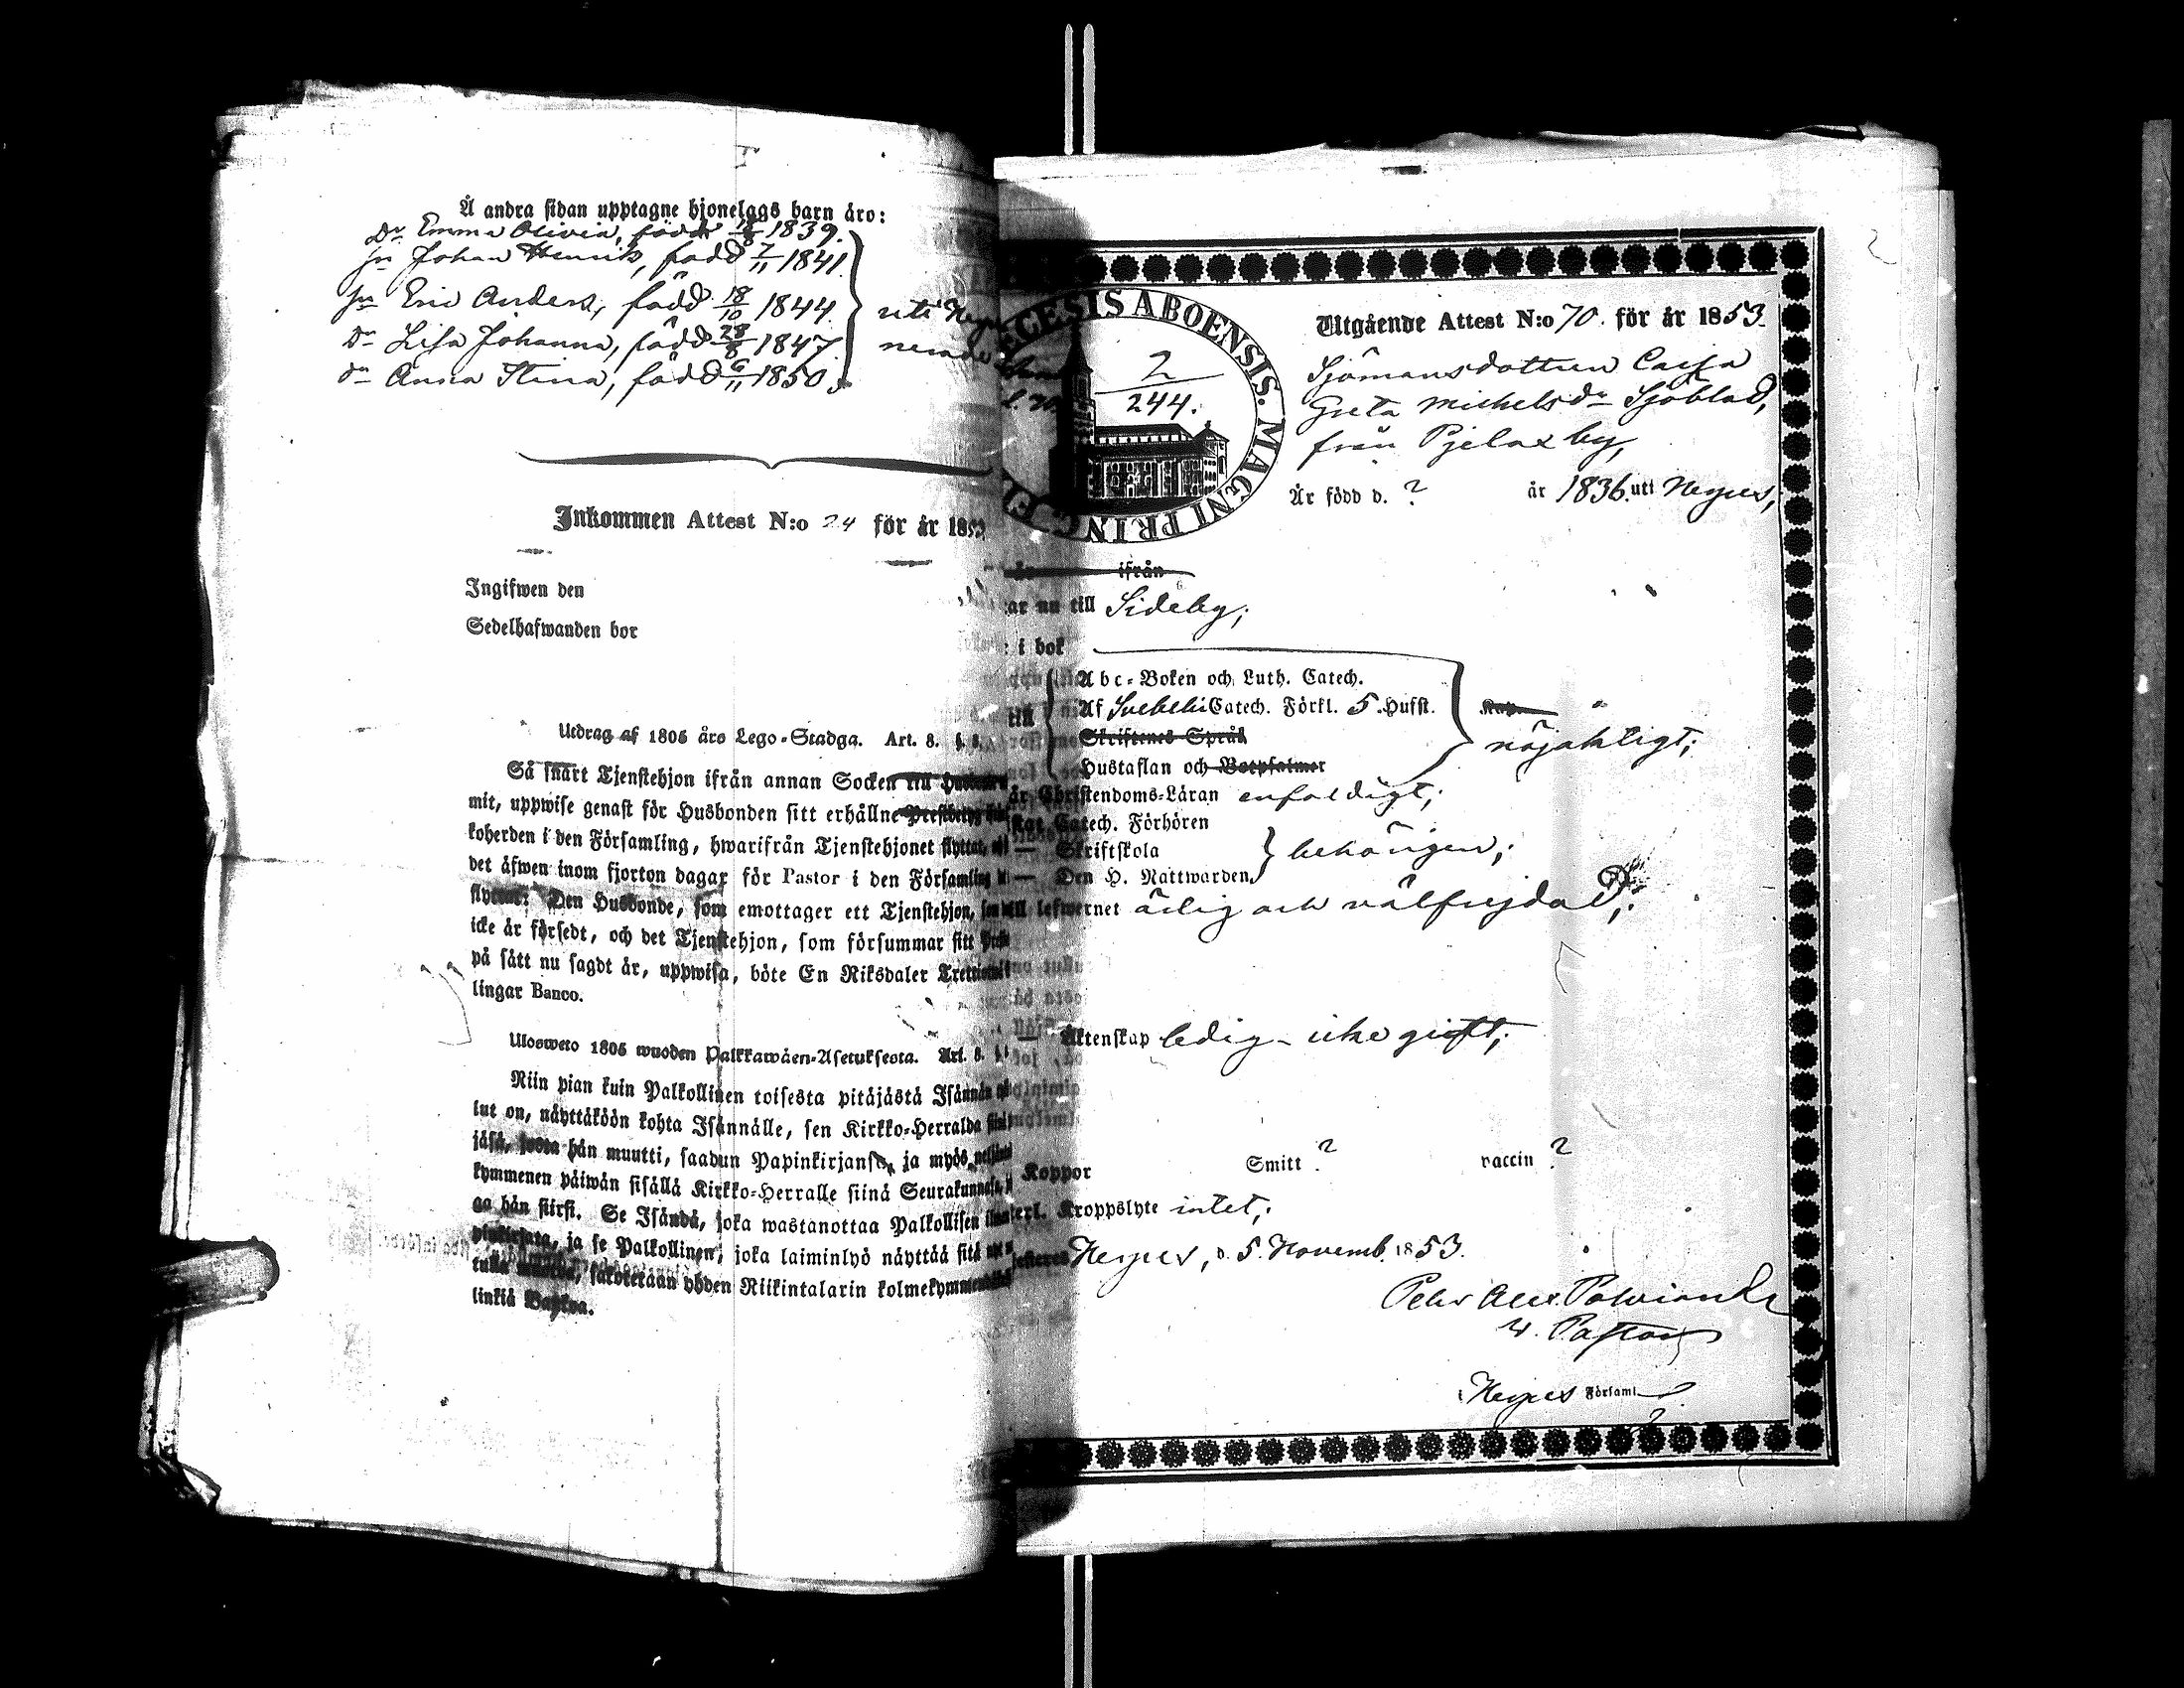 Å andra sidan upptagne hjonelags barn äro:
Dr Emma Olivia, född 1839.
Sn Johan Henrik, född 7/11 1841.
Sn Eric Anders, född 18/10 1844.
Dr Lisa Johanna, född 28/8 1847.
Dr Anna Stina, född 6/11 1850.
uti
Inkommen Attest N:o 24 för år 185
Ingifwen den
Sedelhafwanden bor
Utdrag af 1805 års Lego-Stadga. Art. 8. §. 8.
Så snart Tjenstehjon ifrån annan Socken till
mit, uppwise genast för Husbonden sitt erhållne
koherden i den Församling, hwarifrån Tjenstehjonet flyttat,
det äfwen inom fjorton dagar för Pastor i den Församling
flyttat. Den Husbonde, som emottager ett Tjenstehjon,
icke är försedt, och det Tjenstehjon, som försummar sitt
på sätt nu sagdt är, uppwisa, böte En Riksdaler
lingar Banco.
Ulosweto 1805 wuoden Palkkawäen-Asetuksesta. Art. 8.
Niin pian kuin Palkollinen toisesta pitäjästä Isännän
lut on, näyttäköön kohta Isännälle, sen Kirkko-Herralda
jäsä, josta hän muutti, saadun Papinkirjansa, ja myös
kymmenen päiwän sisällä Kirkko-Herralle siinä Seurakunnasa,
ga hän siirsi. Se Isändä, joka wastanottaa Palkollisen
pinkirjata, ja se Palkollinen, joka laiminlyö näyttää sitä
tulla sakotetaan yhden Riikintalarin
linkiä Bankoa.
CESIS ABOENSIS. MAGNI PRINC
2
244.
Utgående Attest N:o 70. för år 1853.
Sjömansdottren Cajsa
Greta Michelsdr Sjöblad,
från Pjelax by,
Är född d. ? år 1836. uti Nerpes,
ifrån
ar nu till Sideby;
i bok
Abc-Boken och Luth. Catech.
Af Svebelii Catech. Förkl. 5. Hufst.
Skriftenes Språk
Hustaflan och Botpsalmer
nöjaktigt;
är Christendoms-Läran enfaldigt;
Catech. Förhören
— Skriftskola
— Den H. Nattwarden
behörigen;
till lefwernet ärlig och välfrejdad;
— Äktenskap ledig – icke gift;
Koppor Smitt ? vaccin ?
Kroppslyte intet;
Nerpes, d. 5. Novemb. 1853.
Petr Alex.
v. Pastor
Nerpes Församl.